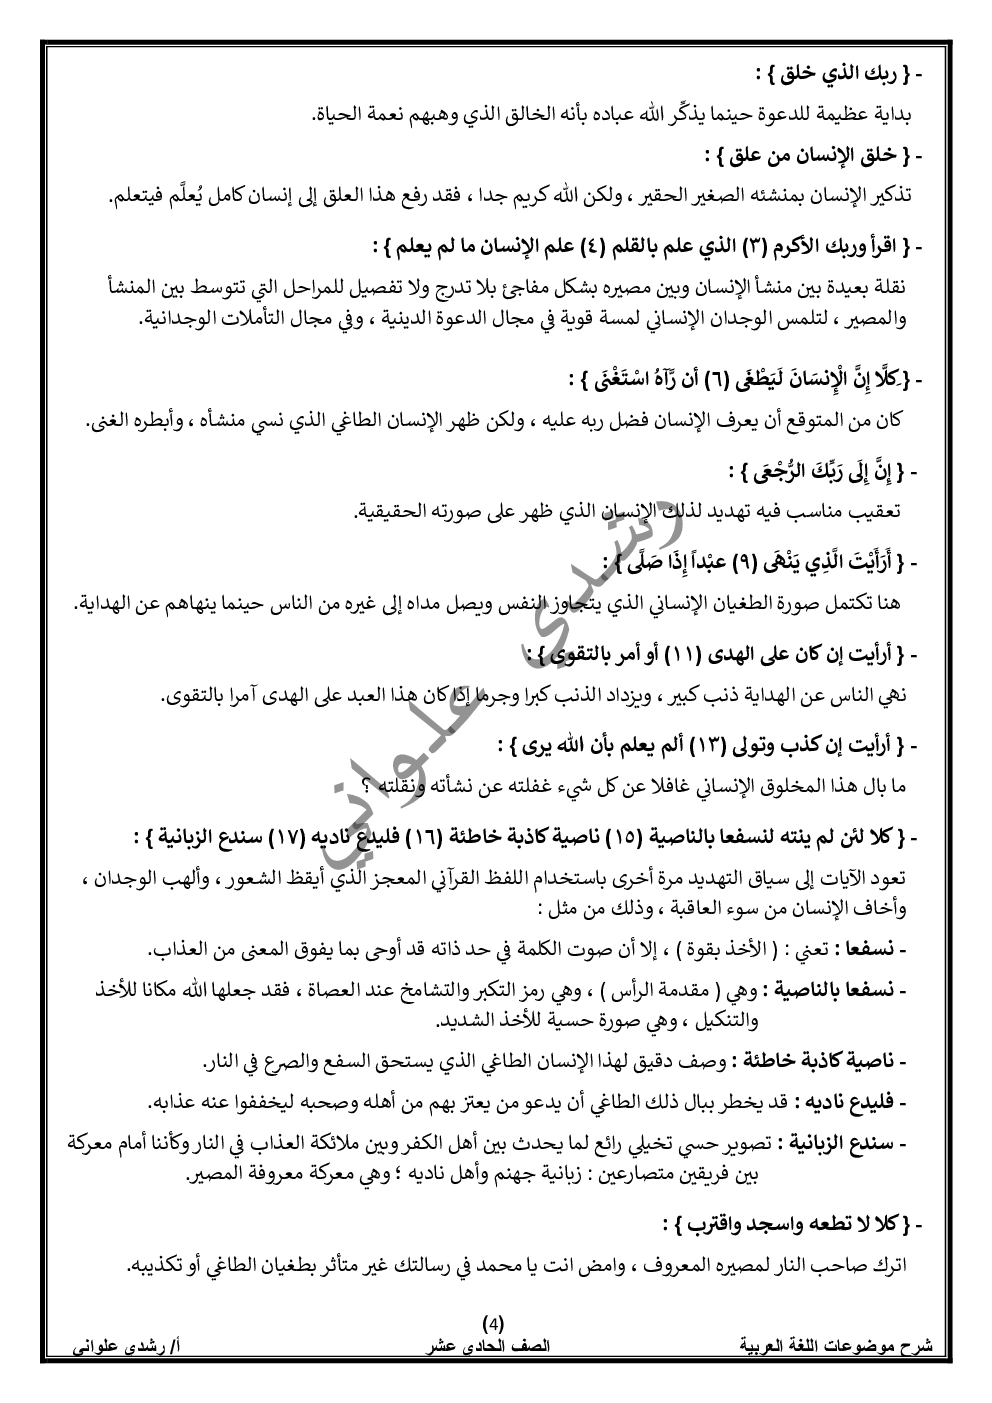 - { ربك الذي خلق } :
بداية عظيمة للدعوة حينما يذكِّر الله عباده بأنه الخالق الذي وهبهم نعمة الحياة.
- { خلق الإنسان من علق } :
تذكير الإنسان بمنشئه الصغير الحقير ، ولكن الله كريم جدا ، فقد رفع هذا العلق إلى إنسان كامل يُعلَّم فيتعلم.
- { اقرأ وربك الأكرم (٣) الذي علم بالقلم (٤) علم الإنسان ما لم يعلم } :
نقلة بعيدة بين منشأ الإنسان وبين مصيره بشكل مفاجئ بلا تدرج ولا تفصيل للمراحل التي تتوسط بين المنشأ
والمصير ، لتلمس الوجدان الإنساني لمسة قوية في مجال الدعوة الدينية ، وفي مجال التأملات الوجدانية.
- { كِلَّا إِنَّ الْإِنسَانَ لَيَطْغَى (٦) أن رَّآهُ اسْتَغْنَى } :
كان من المتوقع أن يعرف الإنسان فضل ربه عليه ، ولكن ظهر الإنسان الطاغي الذي نسي منشأه ، وأبطره الغنى.
- { إِنَّ إِلَى رَبِّكَ الرُّجْعَى } :
تعقيب مناسب فيه تهديد لذلك الإنسان الذي ظهر على صورته الحقيقية.
- { أَرَأَيْتَ الَّذِي يَنْهَى (٩) عبْداً إِذَا صَلَّى } :
هنا تكتمل صورة الطغيان الإنساني الذي يتجاوز النفس ويصل مداه إلى غيره من الناس حينما ينهاهم عن الهداية.
- { أرأيت إن كان على الهدى (١١) أو أمر بالتقوى } :
نهي الناس عن الهداية ذنب كبير ، ويزداد الذنب كبرا وجرما إذ كان هذا العبد على الهدى آمرا بالتقوى.
- { أرأيت إن كذب وتولى (١٣) ألم يعلم بأن الله يرى } :
ما بال هذا المخلوق الإنساني غافلا عن كل شيء غفلته عن نشأته ونقلته ؟
- { كلا لئن لم ينته لنسفعا بالناصية (١٥) ناصية كاذبة خاطئة (١٦) فليدع ناديه (١٧) سندع الزبانية } :
تعود الآيات إلى سياق التهديد مرة أخرى باستخدام اللفظ القرآني المعجز الذي أيقظ الشعور ، وألهب الوجدان ،
وأخاف الإنسان من سوء العاقبة ، وذلك من مثل :
- نسفعا : تعني : ( الأخذ بقوة ) ، إلا أن صوت الكلمة في حد ذاته قد أوحى بما يفوق المعنى من العذاب.
- نسفعا بالناصية : وهي ( مقدمة الرأس ) ، وهي رمز التكبر والتشامخ عند العصاة ، فقد جعلها الله مكانا للأخذ
والتنكيل ، وهي صورة حسية للأخذ الشديد.
- ناصية كاذبة خاطئة : وصف دقيق لهذا الإنسان الطاغي الذي يستحق السفع والصرع في النار.
- فليدع ناديه : قد يخطر ببال ذلك الطاغي أن يدعو من يعتز بهم من أهله وصحبه ليخففوا عنه عذابه.
- سندع الزبانية : تصوير حسي تخيلي رائع لما يحدث بين أهل الكفر وبين ملائكة العذاب في النار وكأننا أمام معركة
بين فريقين متصارعين : زبانية جهنم وأهل ناديه ؛ وهي معركة معروفة المصير.
- { كلا لا تطعه واسجد واقترب } :
اترك صاحب النار لمصيره المعروف ، وامض انت يا محمد في رسالتك غير متأثر بطغيان الطاغي أو تكذيبه.
رشدي علواني
(4)
شرح موضوعات اللغة العربية الصف الحادي عشر أ/ رشدي علواني